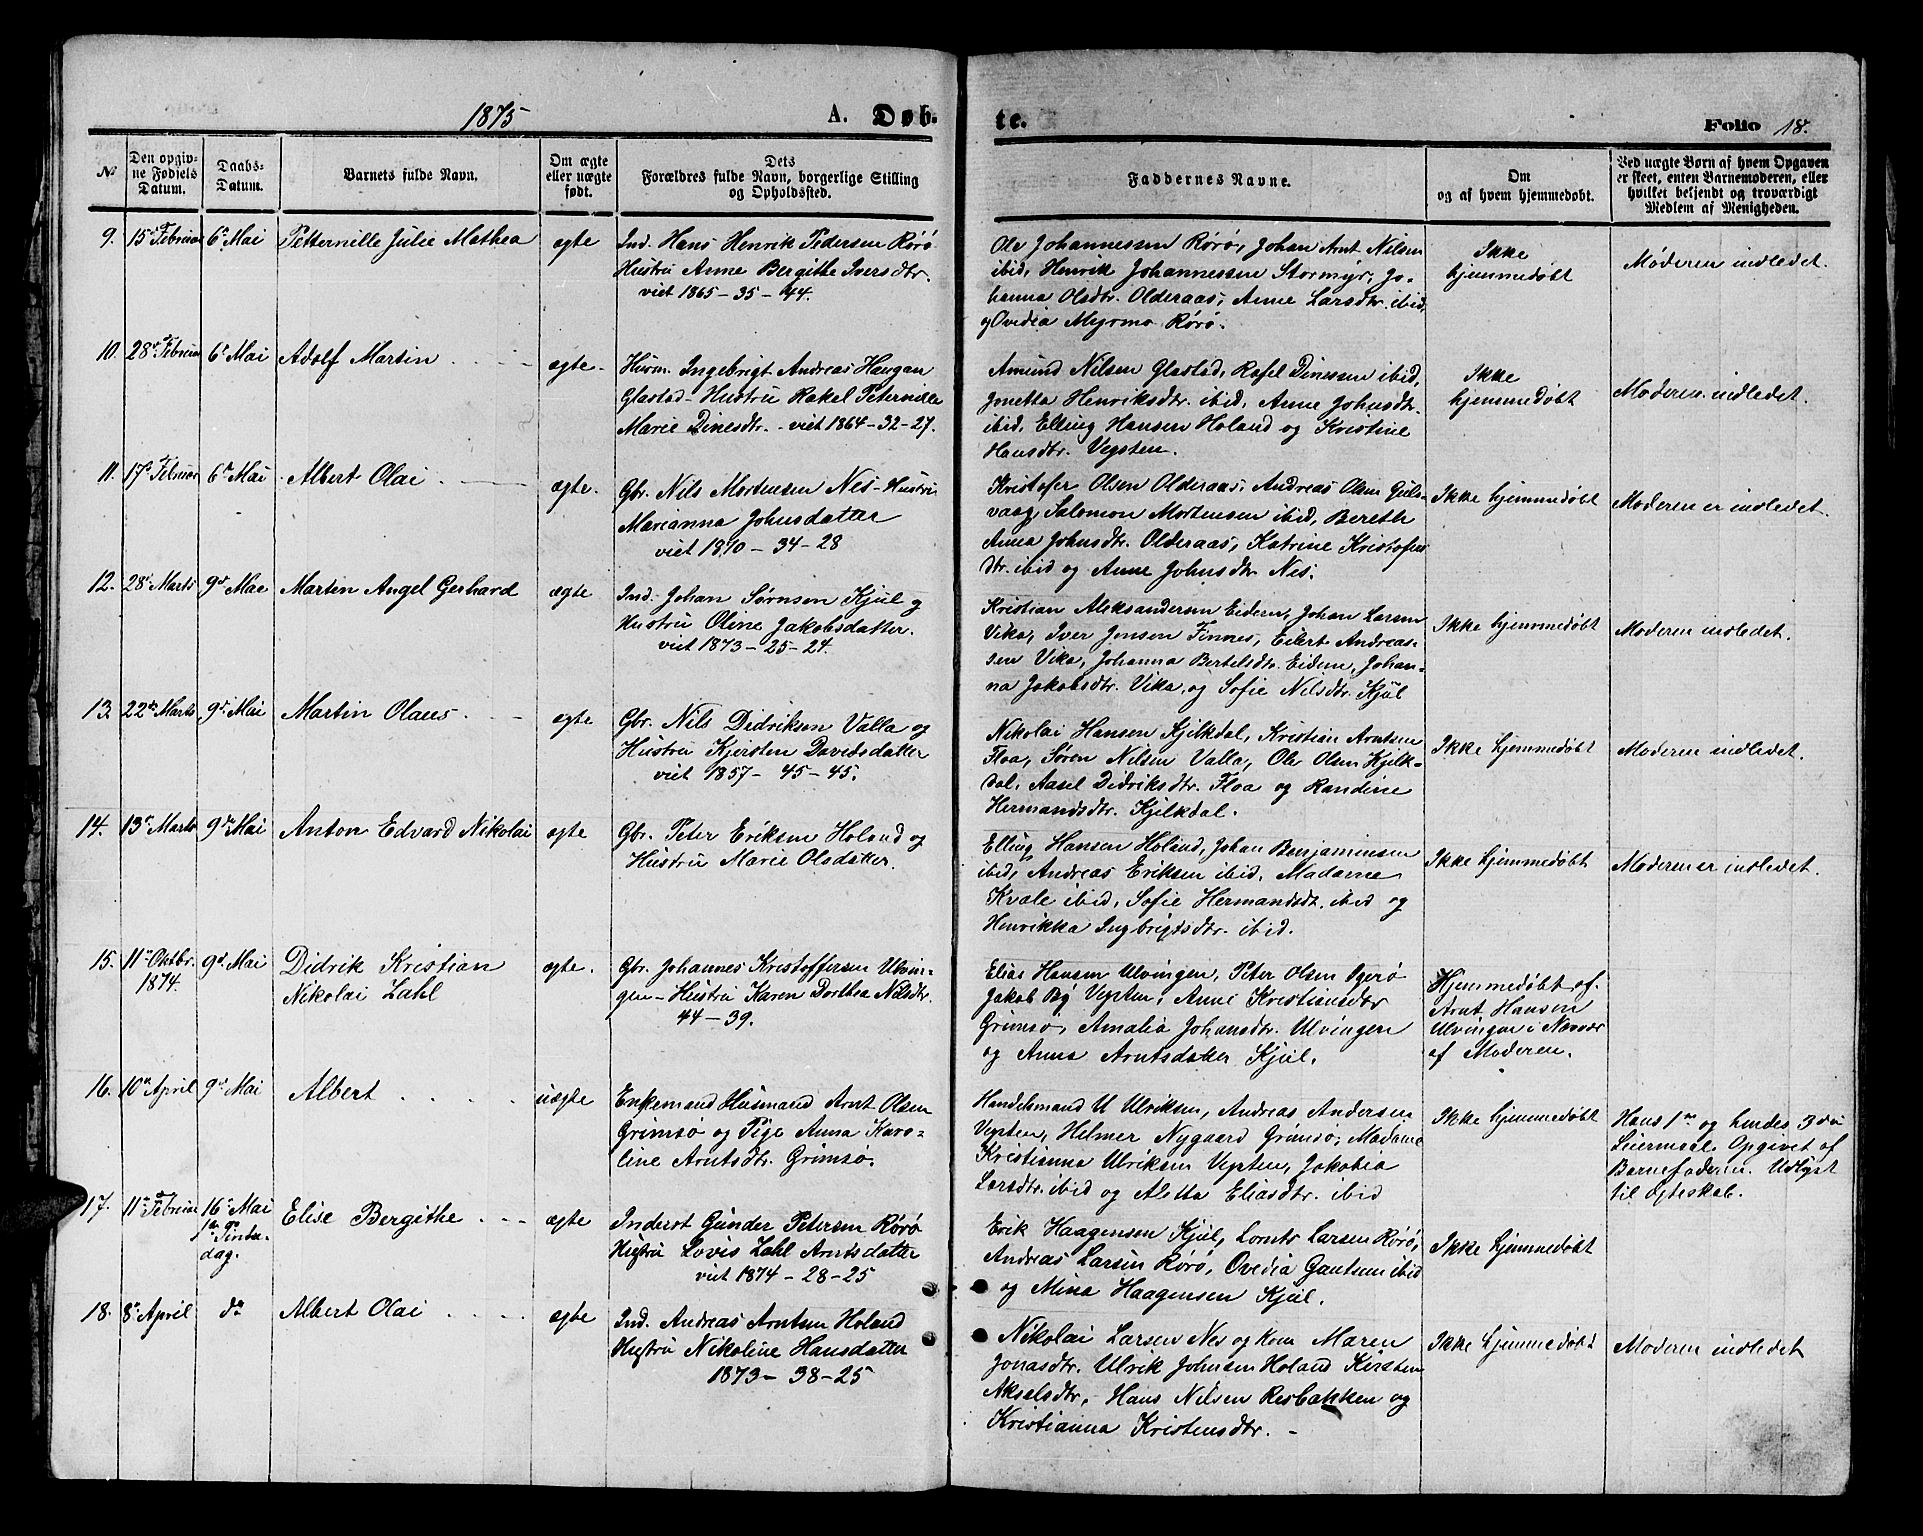 1875 A. Døb-
te. Folio 18.
№
Den opgiv-
ne Fødsels
Datum.
Daabs-
Datum.
Barnets fulde Navn.
Om ægte
eller uægte
født.
Dets
Forældres fulde Navn, borgerlige Stilling
og Opholdssted.
Faddernes Navne.
Om
og af hvem hjemmedøbt.
Ved uægte Børn af hvem Opgaven
er skeet, enten Barnemoderen, eller
hvilket bekjendt og troværdigt
Medlem af Menigheden.
9. 15de Februar 6te Mai Petternille Julie Mathea ægte
Ind. Hans Henrik Pedersen Rørø
Hustru Anne Bergithe Iversdtr.
viet 1865 - 35 - 44.
Ole Johannessen Rørø, Johan Arnt Nilsen
ibid, Henrik Johannessen Stormyr, Jo-
hanna Olsdtr. Olderaas, Anne Larsdtr. ibid,
og Ovedia Myrmo Rørø.
Ikke
hjemmedøbt
Moderen indledet.
10. 28de Februar 6te Mai Adolf Martin ægte.
Husm. Ingebrigt Andreas Haugan
Glastad - Hustru Rakel Peternille
Marie Dinesdtr. - viet 1864 - 32 - 27.
Amund Nilsen Glastad, Rafel Dinessen ibid,
Jonetta Henriksdtr. ibid, Anne Johnsdtr.
ibid, Elling Hansen Holand og Kristine
Hansdtr. Vegsten.
Ikke
hjemmedøbt
Moderen indledet.
11. 17de Februar 6te Mai Albert Olai ægte.
Gbr. Nils Mortensen Nes - Hustru
Marianna Johnsdatter
viet 1870 - 34 - 28
Kristofer Olsen Olderaas, Andreas Olsen Guls-
vaag, Salomon Mortensen ibid, Bereth
Anna Johnsdtr. Olderaas, Katrine Kristofers
dtr. ibid og Anne Johnsdtr Nes.
Ikke hjemmedøbt
Moderen er indledet.
12. 28de Marts 9de Mai Martin Angel Gerhard ægte
Ind. Johan Sørnsen Kjul og
Hustru Oline Jakobsdatter.
viet 1873 - 25 - 24.
Kristian Aleksandersen Eidem, Johan Larsen
Vika, Iver Jensen Finnes, Eilert Andreas-
sen Vika, Johanna Bertelsdtr. Eidem, Johan-
na Jakobsdtr. Vika, og Sofie Nilsdtr. Kjul
Ikke hjemmedøbt
Moderen indledet.
13. 22de Marts 9de Mai Martin Olaus ægte
Gbr. Nils Didriksen Valla og
Hustru Kjersten Davidsdatter
viet 1857 - 45 - 45.
Nikolai Hansen Kjelkdal, Kristian Arntsen
Floa, Søren Nilsen Valla, Ole Olsen Kjelk-
dal, Aasel Didriksdtr. Floa og Randine
Hermandsdtr. Kjelkdal.
Ikke hjemmedøbt
Moderen indledet.
14. 13de Marts 9de Mai Anton Edvard Nikolai ægte
Gbr. Peter Eriksen Holand og
Hustru Marie Olsdatter.
Elling Hansen Holand, Johan Benjaminsen
ibid, Andreas Eriksen ibid, Madame
Kvale ibid, Sofie Hermandsdt. ibid og
Henrikka Ingbrigtsdtr. ibid.
Ikke hjemmedøbt
Moderen er indledet.
15. 11te Oktbr. 9de Mai Didrik Kristian ægte.
1874. Nikolai Zahl
Gbr. Johannes Kristoffersen Ulvin-
gen - Hustru Karen Dorthea Nilsdtr.
44 - 39.
Elias Hansen Ulvingen, Peter Olsen Igerø
Jakob By Vegsten, Anne Kristiansdtr
Grimsø, Amalia Johansdtr. Ulvingen
og Anna Arntsdatter Kjul.
Hjemmedøbt af
Arnt Hansen
Ulvingen i Nærvær
af Moderen.
16. 10de April 9de Mai Albert uægte
Enkemand Husmand Arnt Olsen
Grimsø og Pige Anna Karo-
line Arntsdtr. Grimsø.
Handelsmand U Ulriksen, Andreas Andersen
Vegsten, Helmer Nygaard Grimsø, Madame
Kristianna Ulriksen Vegsten, Jakobia
Larsdtr. ibid og Aletta Eliasdtr. ibid
Ikke hjemmedøbt
Hans 1ste og hendes 3die
Leiermaal. Opgivet af
Barnefaderen. Udlyst
til Ægteskab.
17. 11te Februar 16de Mai Elise Bergithe ægte
1ste Pintse-
dag.
Inderst Gunder Petersen Rørø
Hustru Lovis Zahl Arntsdatter
viet 1874 - 28 - 25
Erik Haagensen Kjul, Lornts Larsen Rørø,
Andreas Larsen Rørø, Ovedia Gautsen ibid
og Mina Haagensen Kjul.
Ikke hjemmedøbt
18. 8de April do Albert Olai ægte
Ind. Andreas Arntsen Holand
Hustru Nikoline Hansdatter
1873 - 38 - 25
Nikolai Larsen Nes og Kone Maren
Jonasdtr. Ulrik Johnsen Holand Kirsten
Akselsdtr. Hans Nilsen Resbakken og
Kristianna Kristensdtr. -
Ikke hjemmedøbt
Moderen indledet